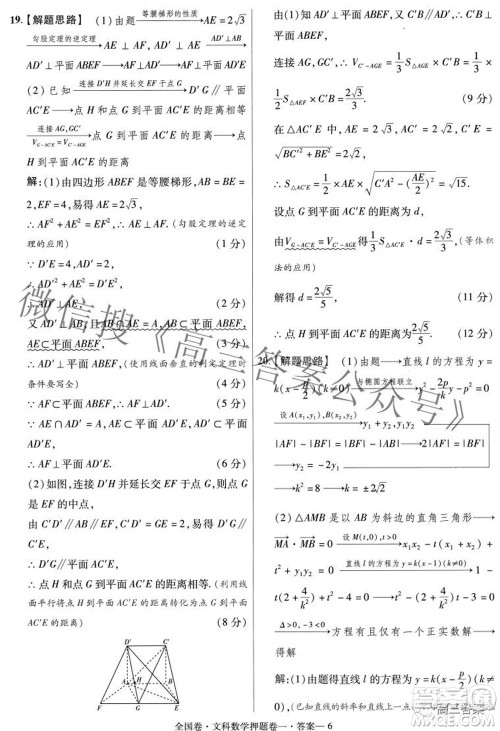 19.【解题思路】(1)由题——等腰梯形的性质→AE=2√3
——勾股定理的逆定理→AE⊥AF,AD'⊥AE——AD'⊥AB→
AD'⊥平面ABEF→AD'⊥AF→AF⊥平面AD'E
(2)已知——连接D'H并延长交EF于点G→D'G∥平面
AC'E→点H和点G到平面AC'E的距离相等
——连接AG,GC' V_{G-AC'E}=V_{C'-AGE}→点G到平面AC'E的距离→点
H到平面AC'E的距离
解:(1)由四边形ABEF是等腰梯形,AB=BE=
2,EF=4,易得AE=2√3,
∴AF²+AE²=EF²,∴AF⊥AE.(勾股定理的逆定
理的应用) (1分)
∵D'E=4,AD'=2,
∴AD'²+AE²=D'E²,
∴AD'⊥AE. (2分)
又AD'⊥AB,AB∩AE=A,AB,AE⊂平面ABEF,
∴AD'⊥平面ABEF,(使用线面垂直的判定定理时
条件要写全) (4分)
∵AF⊂平面ABEF,∴AF⊥AD'. (5分)
∵AE∩AD'=A,AE,AD'⊂平面AD'E,
∴AF⊥平面AD'E. (6分)
(2)如图,连接D'H并延长交EF于点G,则点G
是EF的中点,
由C'D'∥AB∥EF,C'D'=EG,易得D'G∥
C'E,
∴D'G∥平面AC'E,
∴点H和点G到平面AC'E的距离相等.(利用线
面平行将点H到平面AC'E的距离转化为点G到
平面AC'E的距离) (8分)
D' C'
A H B
F G E
由题意得C'B⊥平面ABEF,C'B=AD'=2.
连接AG,GC',则V_{C'-AGE}=1/3 S_{△AGE}×C'B=1/3×
1/2 S_{△AEF}×C'B=2√3/3. (9分)
在△AC'E中,AE=2√3,AC'=C'E=
√(BC'²+BE²)=2√2,
∴S_{△AC'E}=1/2×AE×√(C'A²-(AE/2)²)=√15.
设点G到平面AC'E的距离为d,
由V_{G-AC'E}=V_{C'-AGE}得1/3 S_{△AC'E}·d=2√3/3,(等体积
法的应用)
解得d=2√5/5, (11分)
∴点H到平面AC'E的距离为2√5/5. (12分)
20.【解题思路】(1)由题→直线l的方程为y=
k(x-p/2)(k≠0)——与抛物线方程联立→y²-2p/k y-p²=0
——设A(x₁,y₁),B(x₂,y₂)→y₁+y₂,y₁y₂→2|AF|-|BF|=
|AF|·|BF|=|BF|-|AF|→|BF|=2|AF|
→y₂=-2y₁
→k²=8→k=±2√2
(2)△AMB是以AB为斜边的直角三角形→
MA·MB=0——设M(t,0),t>0→x₁x₂-t(x₁+x₂)+
t²+y₁y₂=0——直线l的方程为y=k(x-1)(k≠0)→1-
t(2+4/k²)+t²-4=0→t²-(2+4/k²)t-3=0
——Δ>0,t>0→方程有且仅有一个正实数解→得解
解:(1)由题可得直线l的方程为y=k(x-p/2)(k≠
0),(已知直线的斜率与直线上一点
全国卷·文科数学押题卷一·答案—6
微信搜《高三答案公众号》
高三答案